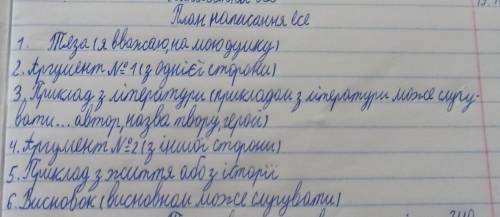 План написання есе
1. Теза (я вважаю, на мою думку)
2. Аргумент №1 (з однієї сторони)
3. Приклад з літератури (прикладом з літератури може слугу-
вати... автор, назва твору, герой)
4. Аргумент №2 (з іншої сторони)
5. Приклад з життя або з історії
6. Висновок (висновком може слугувати)